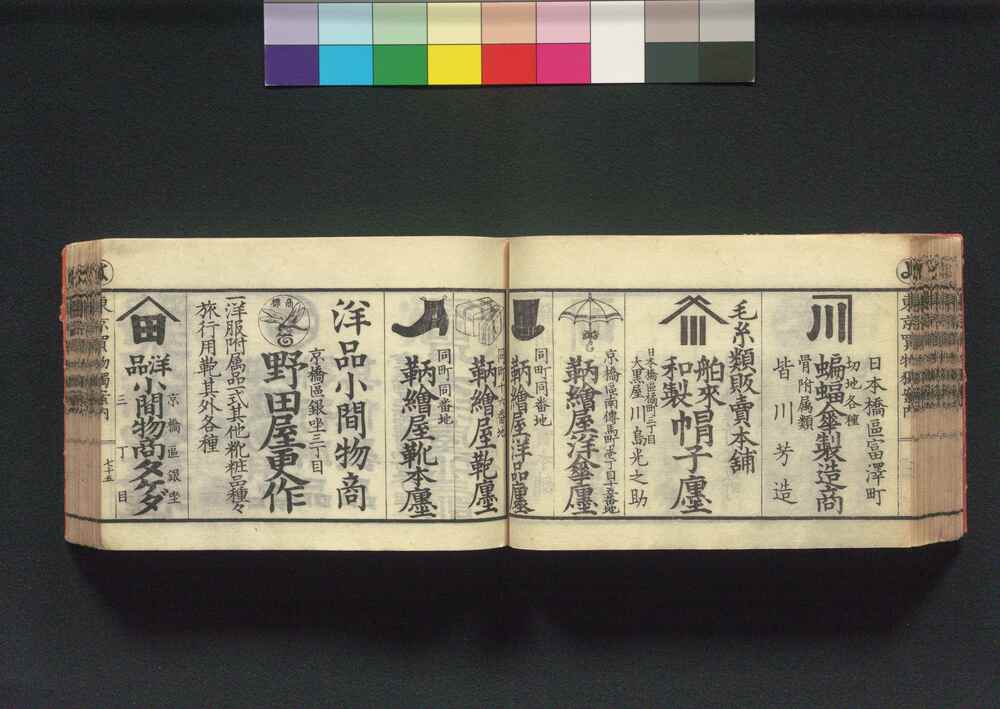 東京買物獨案内
川
日本橋區富澤町
切地各種
骨附属類
蝙蝠傘製造商
皆川芳造
毛糸類販賣本舗
舶來
和製
帽子廛
日本橋區橘町三丁目
大黒屋
川島光之助
京橋區南傳馬町
鞆繪屋洋傘廛
同町同番地
鞆繪屋洋品廛
鞆繪屋鞄廛
同町同番地
鞆繪屋靴本廛
洋品小間物商
京橋區銀座三丁目
商標
野田屋更作
一洋服附属品一式其他靴粧品種々
旅行用鞄其外各種
田
京橋區銀座
三丁目
洋品
小間物商タケダ
七十五